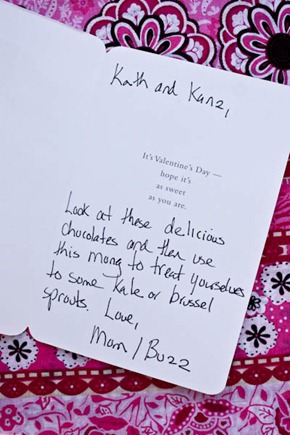 Kath and Kanzi,
It's Valentine's Day —
hope it's
as sweet
as you are.
Look at these delicious
chocolates and then use
this mony to treat yourselves
to some kale or brussel
sprouts. Love,
Mom / Buzz